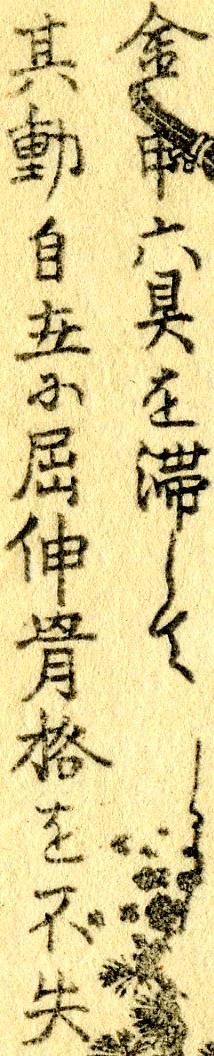 金甲六具を滞して
其動自在に屈伸骨格を不失